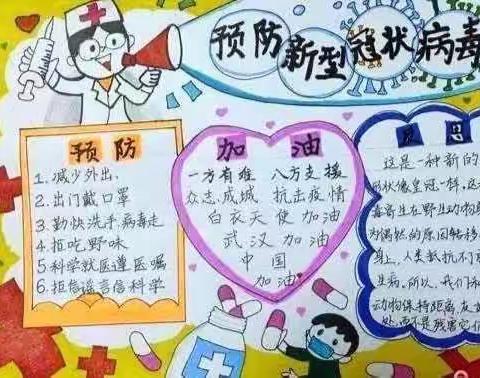 预防新型冠状病毒
预防
1.减少外出,
2.出门戴口罩
3.勤快洗手病毒走
4.拒吃野味
5.科学就医遵医嘱
6.拒信谣言信科学
加油
一方有难 八方支援
众志成城 抗击疫情
白衣天使加油
武汉加油
中国
加油
这是一种新的
形状像皇冠一样,这
毒寄生在野生动物
为偶然的原因转移
身上,人类抵抗不了
生病。所以,我们和
动物保持距离,友
处而不是残害它们